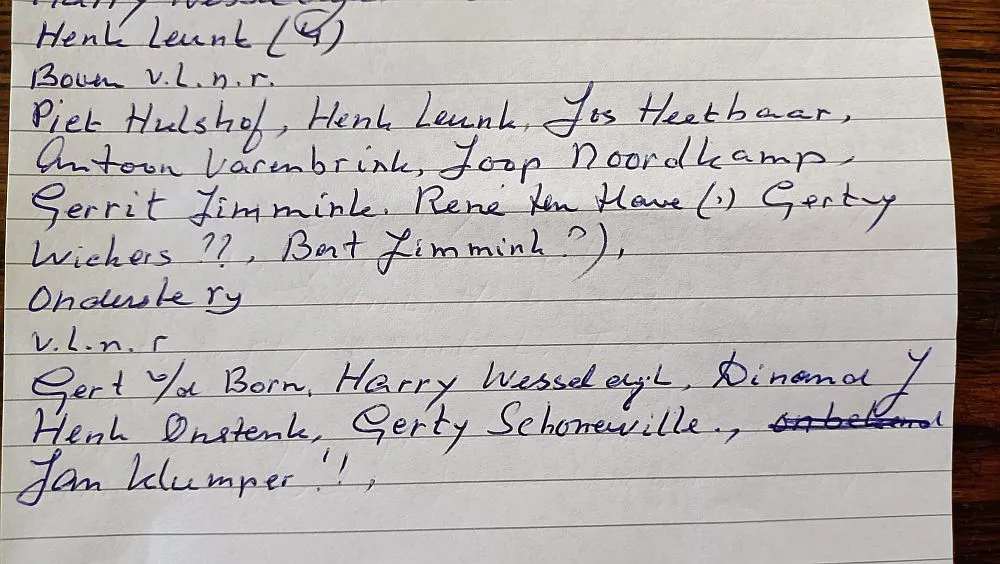 Henk Leunk (4)
Boven v.l.n.r.
Piet Hulshof, Henk Leunk, Jos Heetbaar,
Antoon Varenbrink, Joop Noordkamp,
Gerrit Jimmink. René ten Have (?) Gerty
Wichers ??, Bert Jimmink ?),
Onderste ry
v.l.n.r
Gert v/d Born, Harry Wesselegl, Dinand J
Henk Onstenk, Gerty Schoneville.,
Jan Klumper !!,